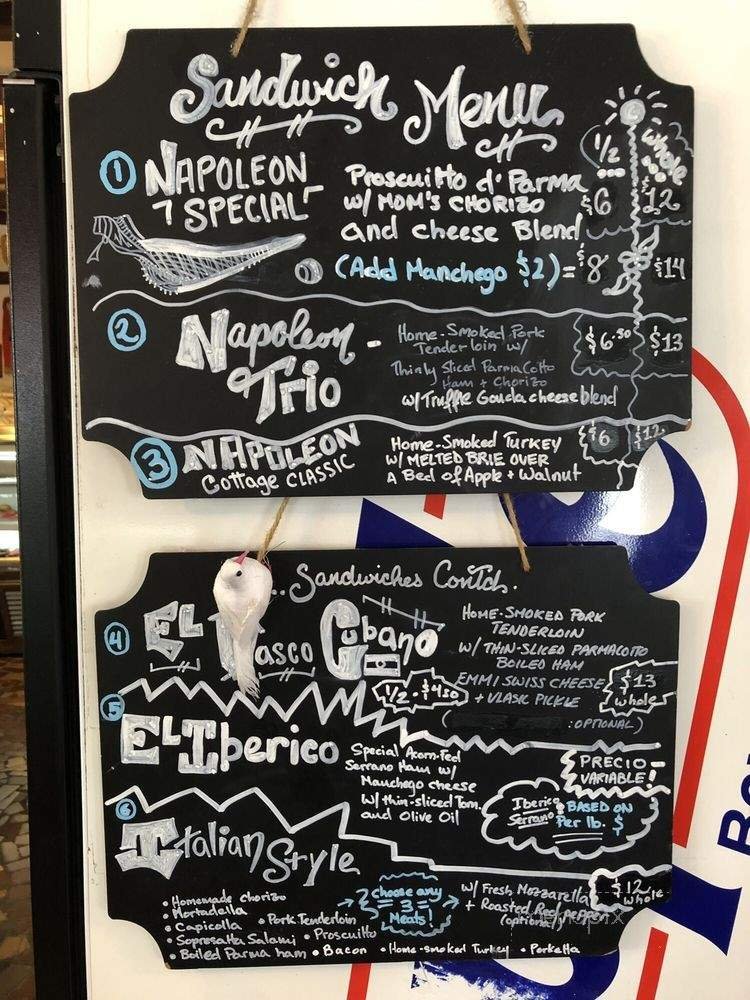 Sandwich Menu
1/2 whole
1 NAPOLEON
SPECIAL
Proscuitto d' Parma
w/ MOM'S CHORIZO
and cheese Blend
$6 $12
(Add Manchego $2) = $8 $14
2 Napoleon
Trio -
Home-Smoked Pork
Tenderloin w/
Thinly Sliced Parma Cotto
Ham + Chorizo
w/Truffle Gouda cheese blend
$6.50 $13
3 NAPOLEON
Cottage CLASSIC
Home-Smoked Turkey
w/ MELTED BRIE OVER
A Bed of Apple + Walnut
$6 $12
... Sandwiches Contd.
4 EL asco Cubano
HOME-SMOKED PORK
TENDERLOIN
W/ THIN-SLICED PARMACOTTO
BOILED HAM
EMMI SWISS CHEESE
+ VLASIC PICKLE
( :OPTIONAL)
1/2 - $
$13
whole
5 El Iberico
Special Acorn-Fed
Serrano Ham w/
Manchego cheese
w/ thin-sliced Tom.
and Olive Oil
PRECIO
VARIABLE!
Iberico
Serrano
BASED ON
Per lb. $
6 Italian Style
• Homemade chorizo
• Mortadella
• Capicolla
• Sopresatta Salami
• Boiled Parma ham
• Pork Tenderloin
• Proscuitto
• Bacon • Home-smoked Turkey • Porketta
choose any
3
Meats!
w/ Fresh Mozzarella
+ Roasted Red PEPPER
(optional)
$12
whole